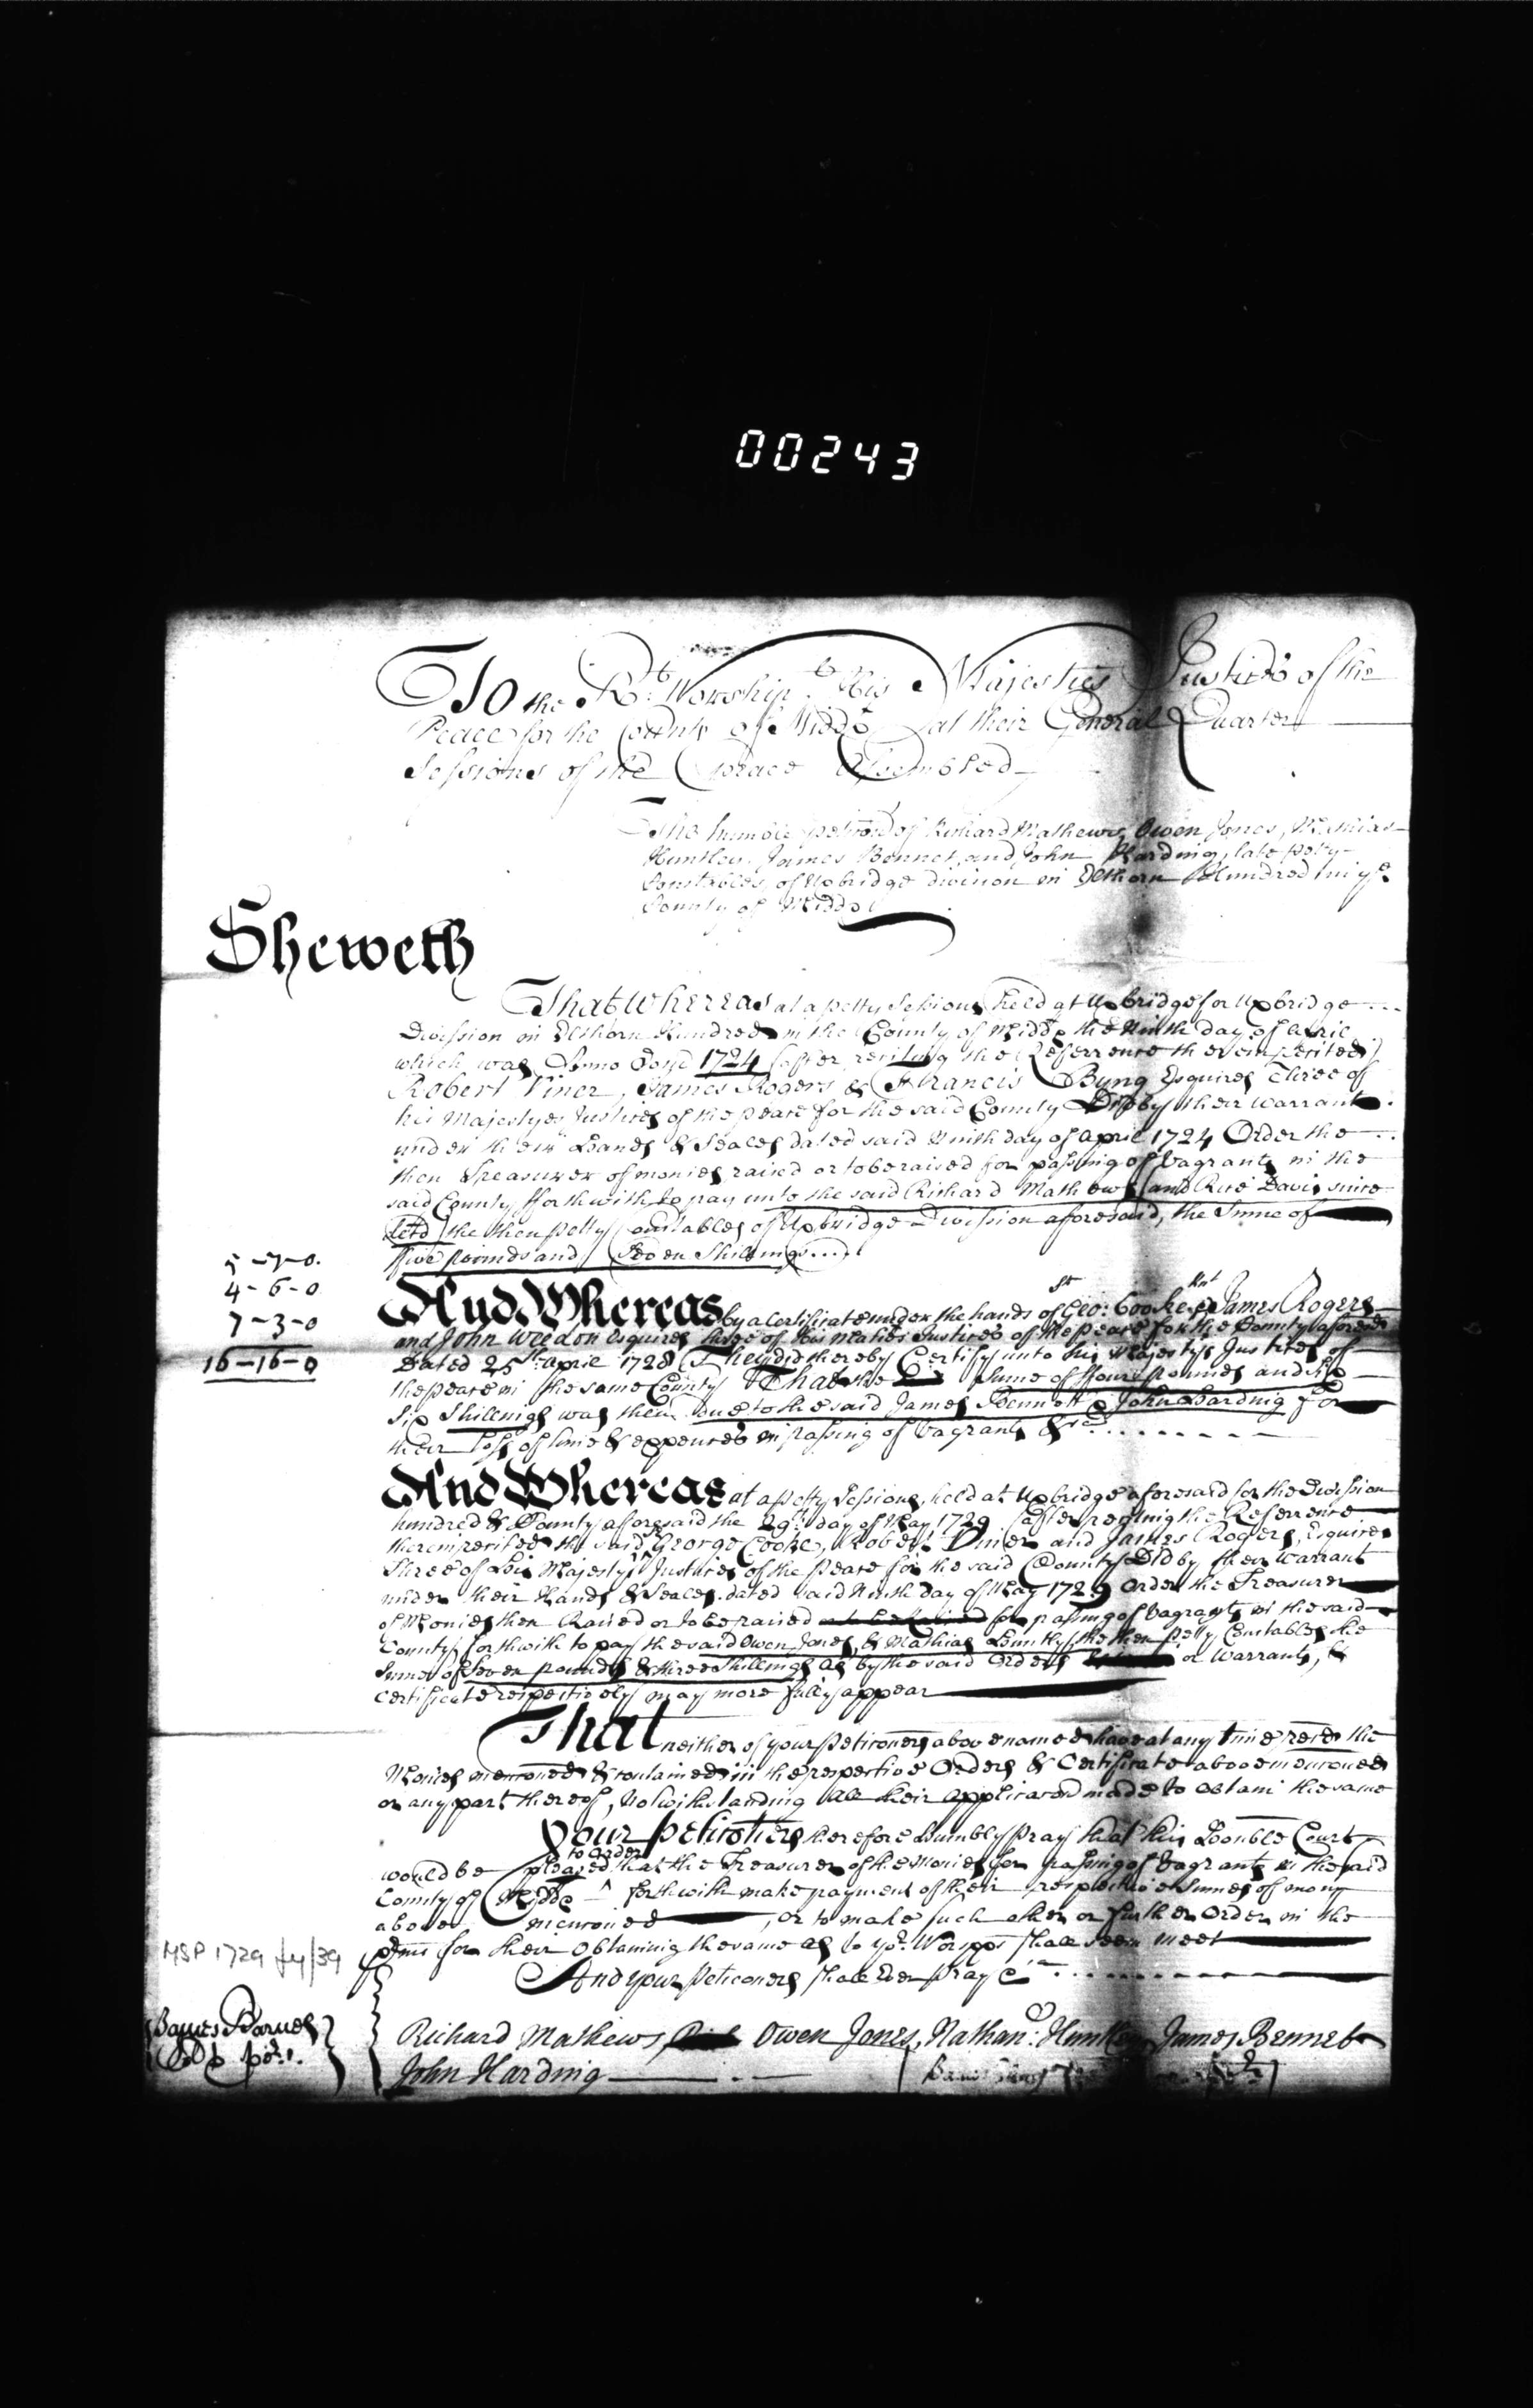 00243
To the Rt. Worshipll. His Majesties Justices of the
Peace for the County of Middx. at their General Quarter
Sessions of the Peace Assembled
The humble peticon of Richard Mathews, Owen Jones, Mathias
Huntley, James Bennet, and John Harding, late petty
Constables, of Uxbridge division in Elthorn Hundred in ye.
County of Middx.
Sheweth
That whereas at a petty Sessions held at Uxbridge for Uxbridge
Division in Elthorn Hundred in the County of Middx the Ninth day of Aprill
which was Anno Domi 1724 (after reciting the Referrence therein recited)
Robert Viner, James Rogers & Francis Byng Esquires Three of
his Majestyes Justices of the peace for the said County Did by their warrant
under their Hands & Seales dated said Ninth day of April 1724 Order the
then Treasurer of monies raised or to be raised for passing of Vagrants in the
said County fforthwith to pay unto the said Richard Mathews (and Ricd Davis since
decd) the then petty Constables of Uxbridge Division aforesaid, the Sume of
ffive pounds and Seven Shillings
5-7-0.
4-6-0
7-3-0
16-16-0
And Whereas by a Certificate under the hands of Sr Geo: Cooke Knt James Rogers
and John Weedon Esquires three of his Maties Justices of the peace for the County aforesd
Dated 25th. April 1728 They did thereby Certify unto his Majestys Justices of
the peace in the same County That the Sume of ffour pounds and Six
Six Shillings was then due to the said James Bennett & John Harding for
their loss of time & expences in passing of Vagrants &c
And Whereas at a petty Sessions, held at Uxbridge aforesaid for the Division
hundred & County afforesaid the 29th. day of May 1729 (after reciting the Referrence
therein recited the said Sr George Cooke, Robert Viner and James Rogers, Esquires
Three of his Majestys Justices of the peace for the said County Did by their Warrant
under their Hands & Seales dated said Ninth day of May 1729 Order the Treasurer
of Monies then Raised or to be raised for passing of Vagrants in the said
County forthwith to pay the said Owen Jones, & Mathias Huntly, the then petty Constables the
Sume of Seven pounds & three Shillings As by the said Orders or Warrants, &
Certificate respectively may more fully appear
That neither of your peticoners above named have at any time recd. the
Monies menconed & contained in the respective Orders & Certificate above menconed
or any part thereof, Notwithstanding all their applicacon made to obtain the same
Your peticoners therefore humbly pray that this Honble Court
would be pleased to order that the Treasurer of the Monies for passing of Vagrants in the said
County of Middx forthwith make payment of their respective Sumes of mony
above menconed, or to make such other or further Order in the
pmisses for their obtaining the same as to yor. Worspps shall seem meet
And your peticoners shall Ever pray &c
MSP 1729 Jy/39
James Barnes
Richard Mathews Owen Jones, Nathan: Huntley James Bennet
John Harding